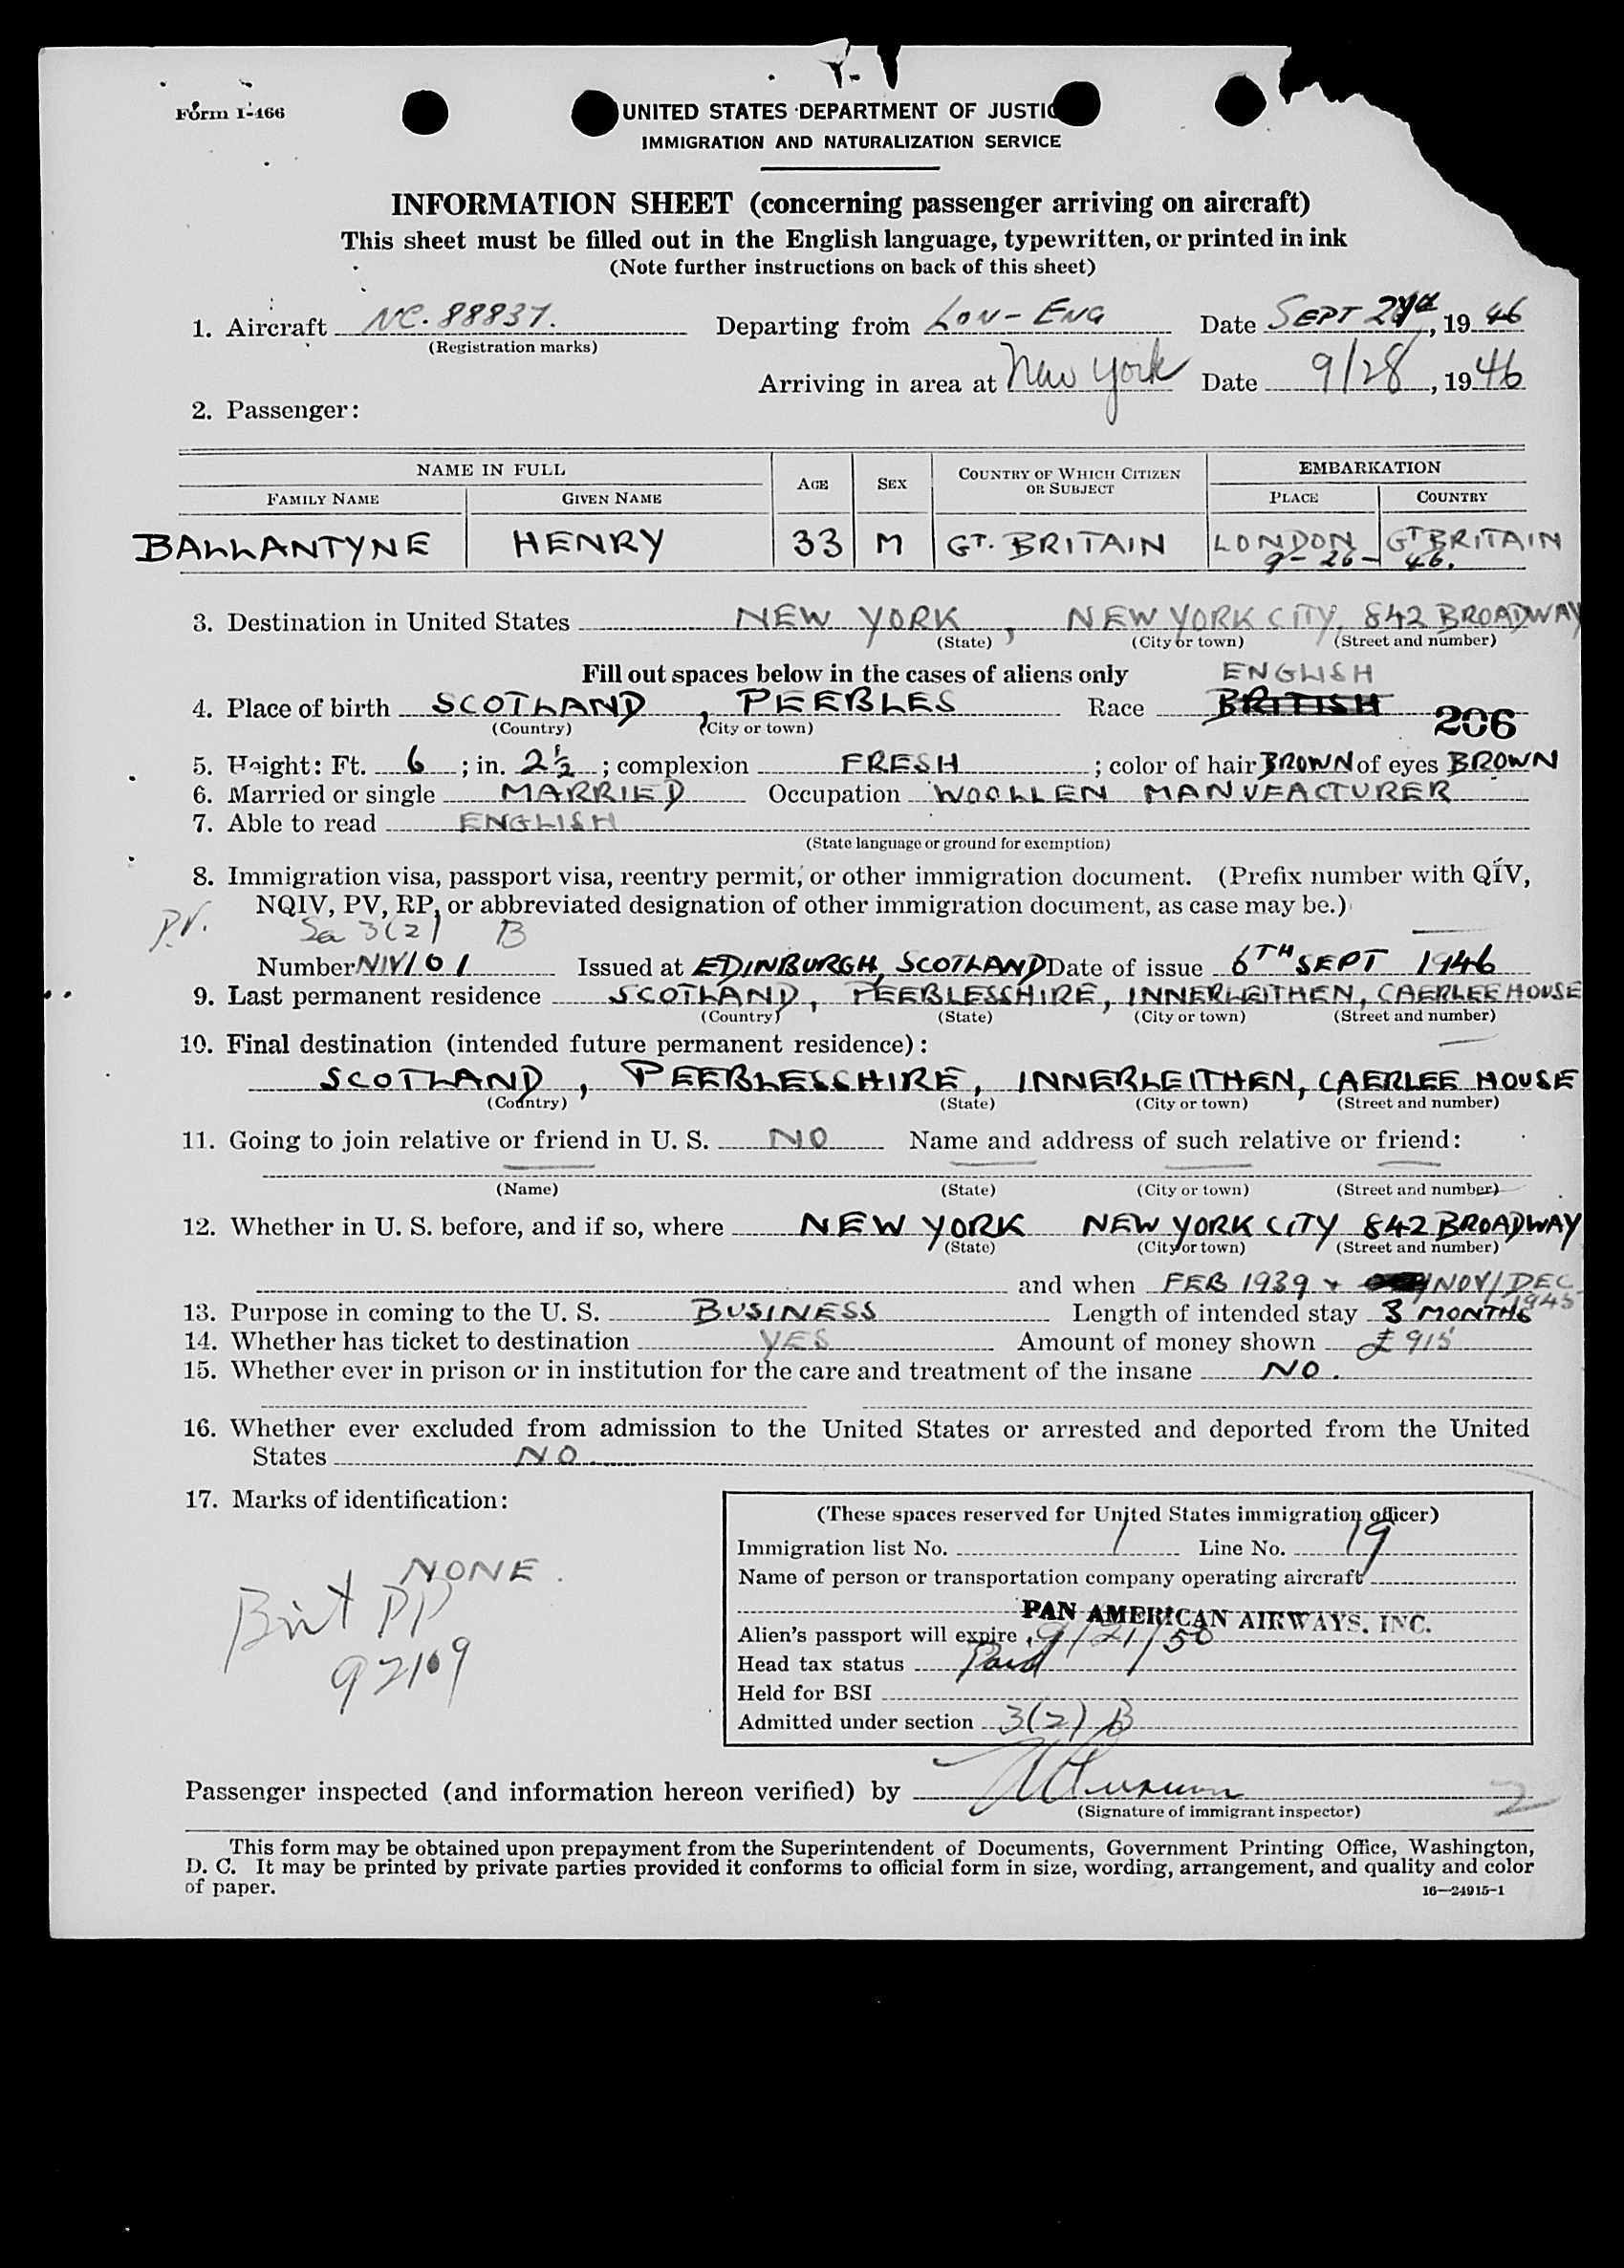 Form I-466
UNITED STATES DEPARTMENT OF JUSTIC
IMMIGRATION AND NATURALIZATION SERVICE
INFORMATION SHEET (concerning passenger arriving on aircraft)
This sheet must be filled out in the English language, typewritten, or printed in ink
(Note further instructions on back of this sheet)
1. Aircraft NC. 88837. Departing from LON-ENG Date SEPT , 19 46
(Registration marks)
Arriving in area at New York Date 9/28, 19 46
2. Passenger:
NAME IN FULL AGE SEX COUNTRY OF WHICH CITIZEN OR SUBJECT EMBARKATION
FAMILY NAME GIVEN NAME PLACE COUNTRY
BALLANTYNE HENRY 33 M GT. BRITAIN LONDON GT BRITAIN
9-26-46.
3. Destination in United States NEW YORK, NEW YORK CITY, 842 BROADWAY
(State) (City or town) (Street and number)
Fill out spaces below in the cases of aliens only ENGLISH
4. Place of birth SCOTLAND, PEEBLES Race BRITISH 206
(Country) (City or town)
5. Height: Ft. 6; in. 2½; complexion FRESH; color of hair BROWN of eyes BROWN
6. Married or single MARRIED Occupation WOOLLEN MANUFACTURER
7. Able to read ENGLISH
(State language or ground for exemption)
8. Immigration visa, passport visa, reentry permit, or other immigration document. (Prefix number with QIV,
NQIV, PV, RP, or abbreviated designation of other immigration document, as case may be.)
P.V. 3(2) B
Number NIV/101 Issued at EDINBURGH, SCOTLAND Date of issue 6TH SEPT 1946
9. Last permanent residence SCOTLAND, PEEBLESSHIRE, INNERLEITHEN, CAERLEE HOUSE
(Country) (State) (City or town) (Street and number)
10. Final destination (intended future permanent residence):
SCOTLAND, PEEBLESSHIRE, INNERLEITHEN, CAERLEE HOUSE
(Country) (State) (City or town) (Street and number)
11. Going to join relative or friend in U. S. NO Name and address of such relative or friend:
(Name) (State) (City or town) (Street and number)
12. Whether in U. S. before, and if so, where NEW YORK NEW YORK CITY 842 BROADWAY
(State) (City or town) (Street and number)
and when FEB 1939 + NOV/DEC 1945
13. Purpose in coming to the U. S. BUSINESS Length of intended stay 3 MONTHS
14. Whether has ticket to destination YES Amount of money shown £915
15. Whether ever in prison or in institution for the care and treatment of the insane NO.
16. Whether ever excluded from admission to the United States or arrested and deported from the United
States NO
17. Marks of identification:
NONE.
Brit PP
92109
(These spaces reserved for United States immigration officer)
Immigration list No. 1 Line No. 19
Name of person or transportation company operating aircraft
PAN AMERICAN AIRWAYS, INC.
Alien's passport will expire 9/21/50
Head tax status Paid
Held for BSI
Admitted under section 3(2) B
Passenger inspected (and information hereon verified) by
(Signature of immigrant inspector)
2
This form may be obtained upon prepayment from the Superintendent of Documents, Government Printing Office, Washington,
D. C. It may be printed by private parties provided it conforms to official form in size, wording, arrangement, and quality and color
of paper.
16—24915-1